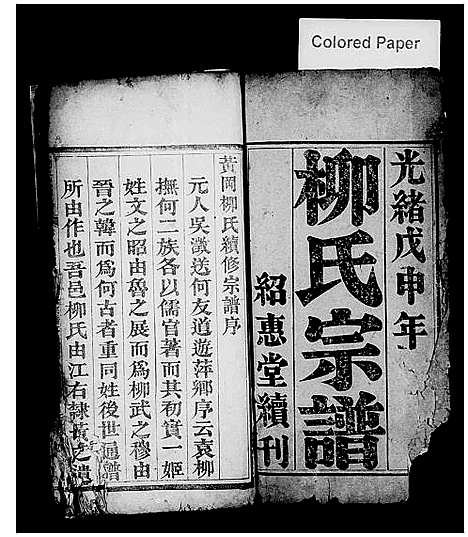 Colored Paper
光緒戊申年
柳氏宗譜
紹惠堂續刊
黃岡柳氏續修宗譜序
元人吳澂送何友道遊萍鄉序云袁柳
撫何二族各以儒官著而其初實一姬
姓文之昭由魯之展而為柳武之穆由
晉之韓而為何古者重同姓後世通譜
所由作也吾邑柳氏由江右隸黃之